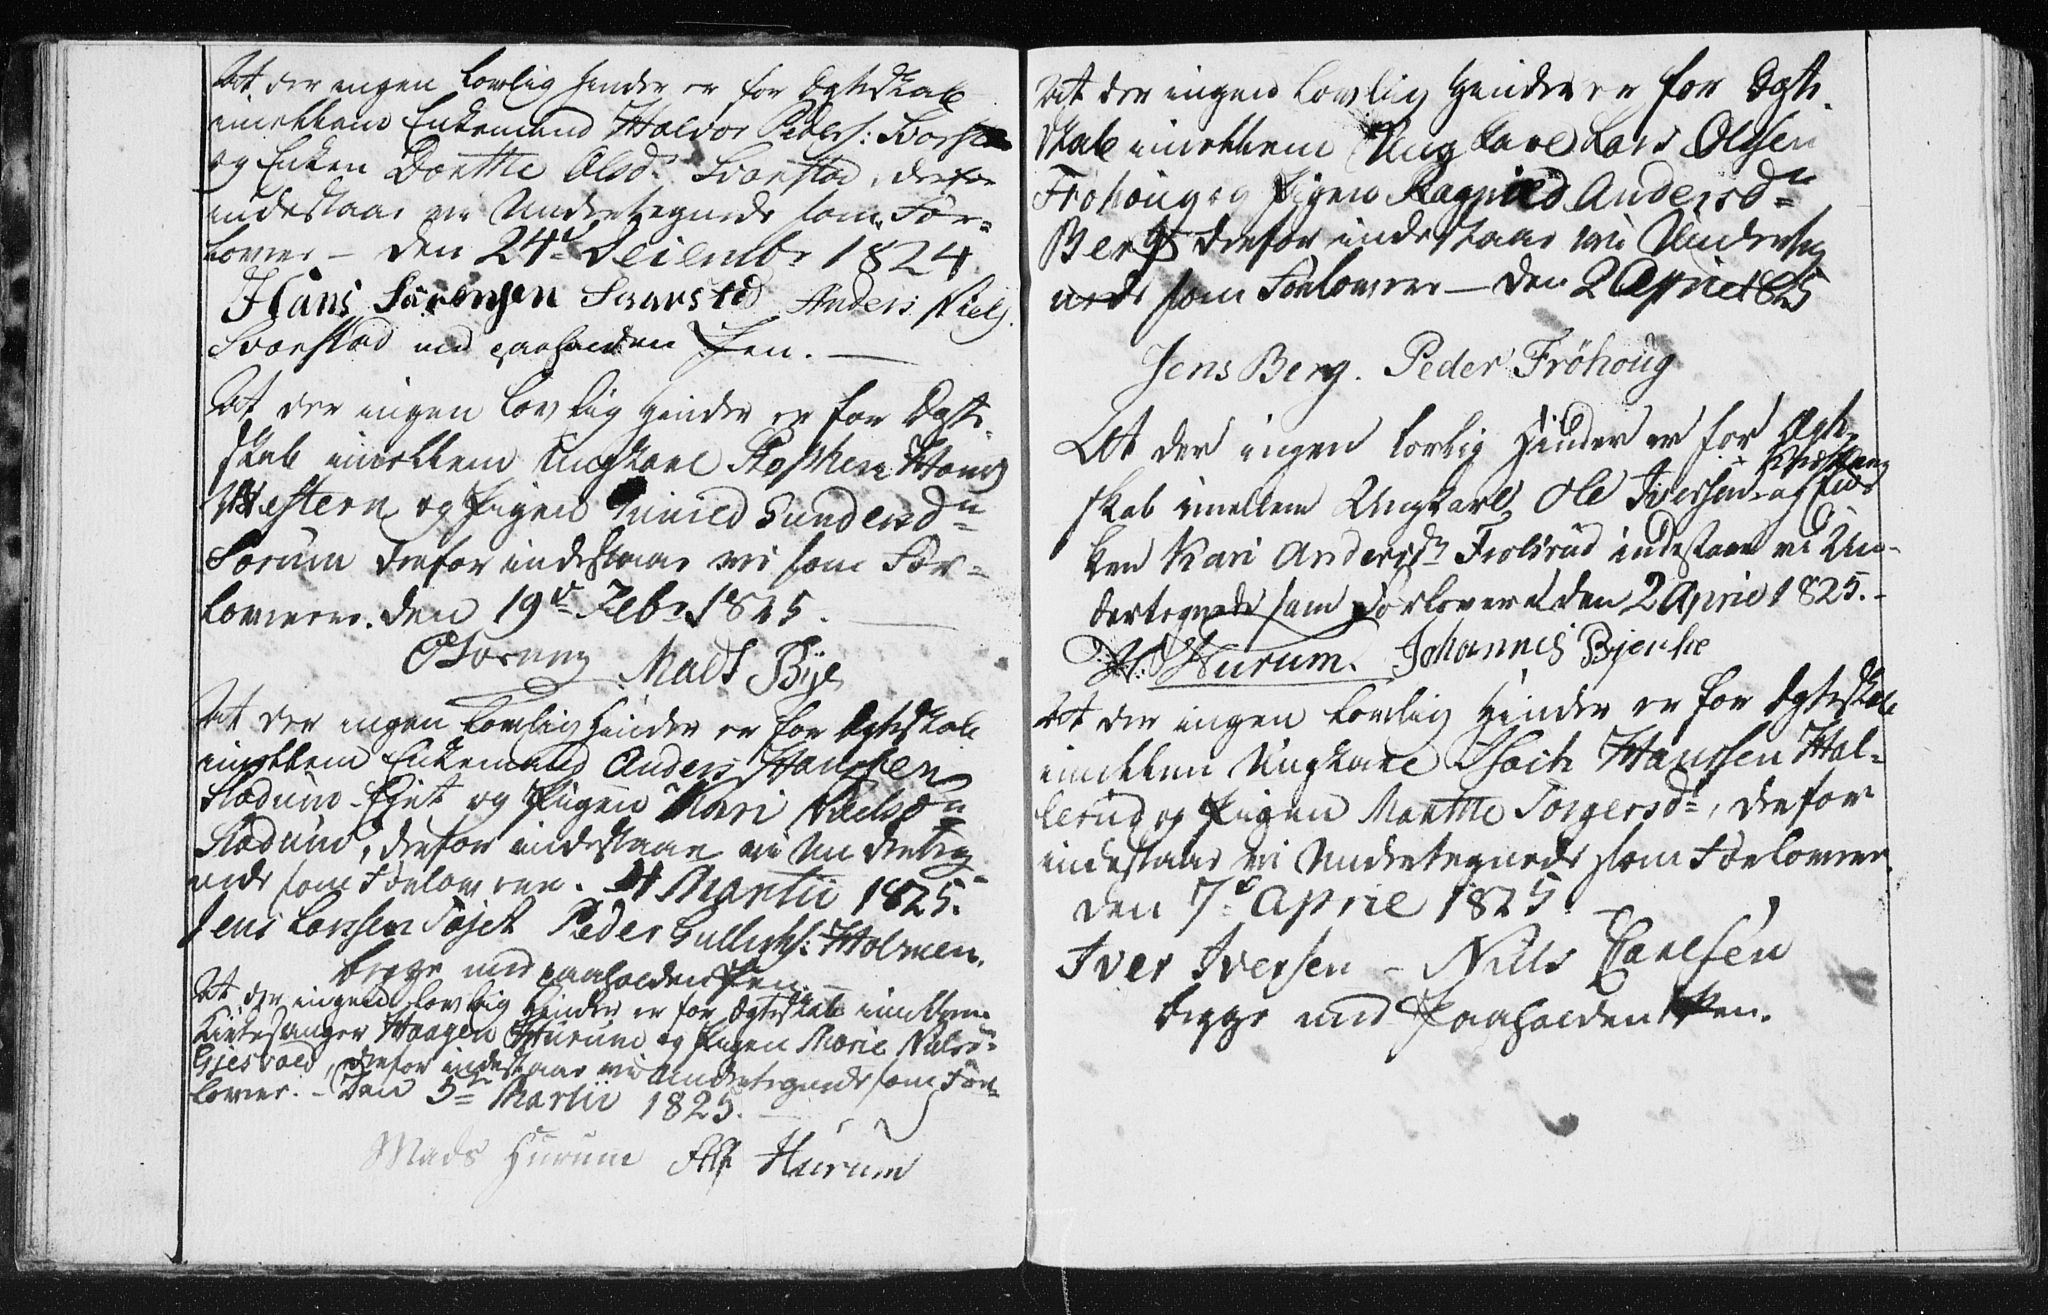 At der ingen Lovlig Hinder er for Egteskab
imellem Enkemand Halvor Peders:
og Enken Dorthe Olsd. Svarstad, derfor
indestaar vi Undertegnede som For-
lovere – Den 24d Decembr 1824
Hans Sörensen Svarstad Anders Niels.
Svarstad med paaholden Pen. —
At der ingen Lovlig Hinder er for Egte-
skab imellem Ungkarl Stephen Houg
Western og Pigen Gunild Gundersdn
Sorum derfor indestaar vi som For-
lovere. Den 19d Febr 1825. —
Mads Bye
At der ingen Lovlig Hinder er for Egteskab
imellem Enkemand Anders Hanssen
Stadum-Ejet og Pigen Kari Nielsdn
Stadum, derfor indestaar vi Underteg-
nede som Forlovere. 4 Martii 1825.
Jens Larssen Pederissen Gulliks: Holmen.
begge med paaholden Pen. —
At der ingen Lovlig Hinder er for Egteskab imellem
Kirkesanger Haagen Hurum og Pigen Marie Nielsd.
Gjesvold, derfor indestaar vi Undertegnede som For-
lovere. – Den 5te Martii 1825. —
Mads Hurum Hurum
At der ingen Lovlig Hinder er for Egte-
skab imellem Ungkarl Lars Olssen
Frohoug og Pigen Ragnild Andersdn
Berg derfor indestaar vi Underteg
nede som Forlovere – Den 2 April 1825
Jens Berg. Peder Fröhoug
At der ingen lovlig Hinder er for Egte-
skab imellem Ungkarl Ole Iversen
ken Kari Andersdn indestaar vi Un-
dertegnede som Forlovere den 2 April 1825. –
Hurum. Johannes Bjerke
At der ingen Lovlig Hinder er for Egteskab
imellem Ungkarl Hanssen Hal-
lerud og Pigen Marthe Torgersdn, derfor
indestaar vi Undertegnede som Forlovere.
Den 7d April 1825
Iver Iversen – Nills Carlsen
begge med Paaholden Pen.